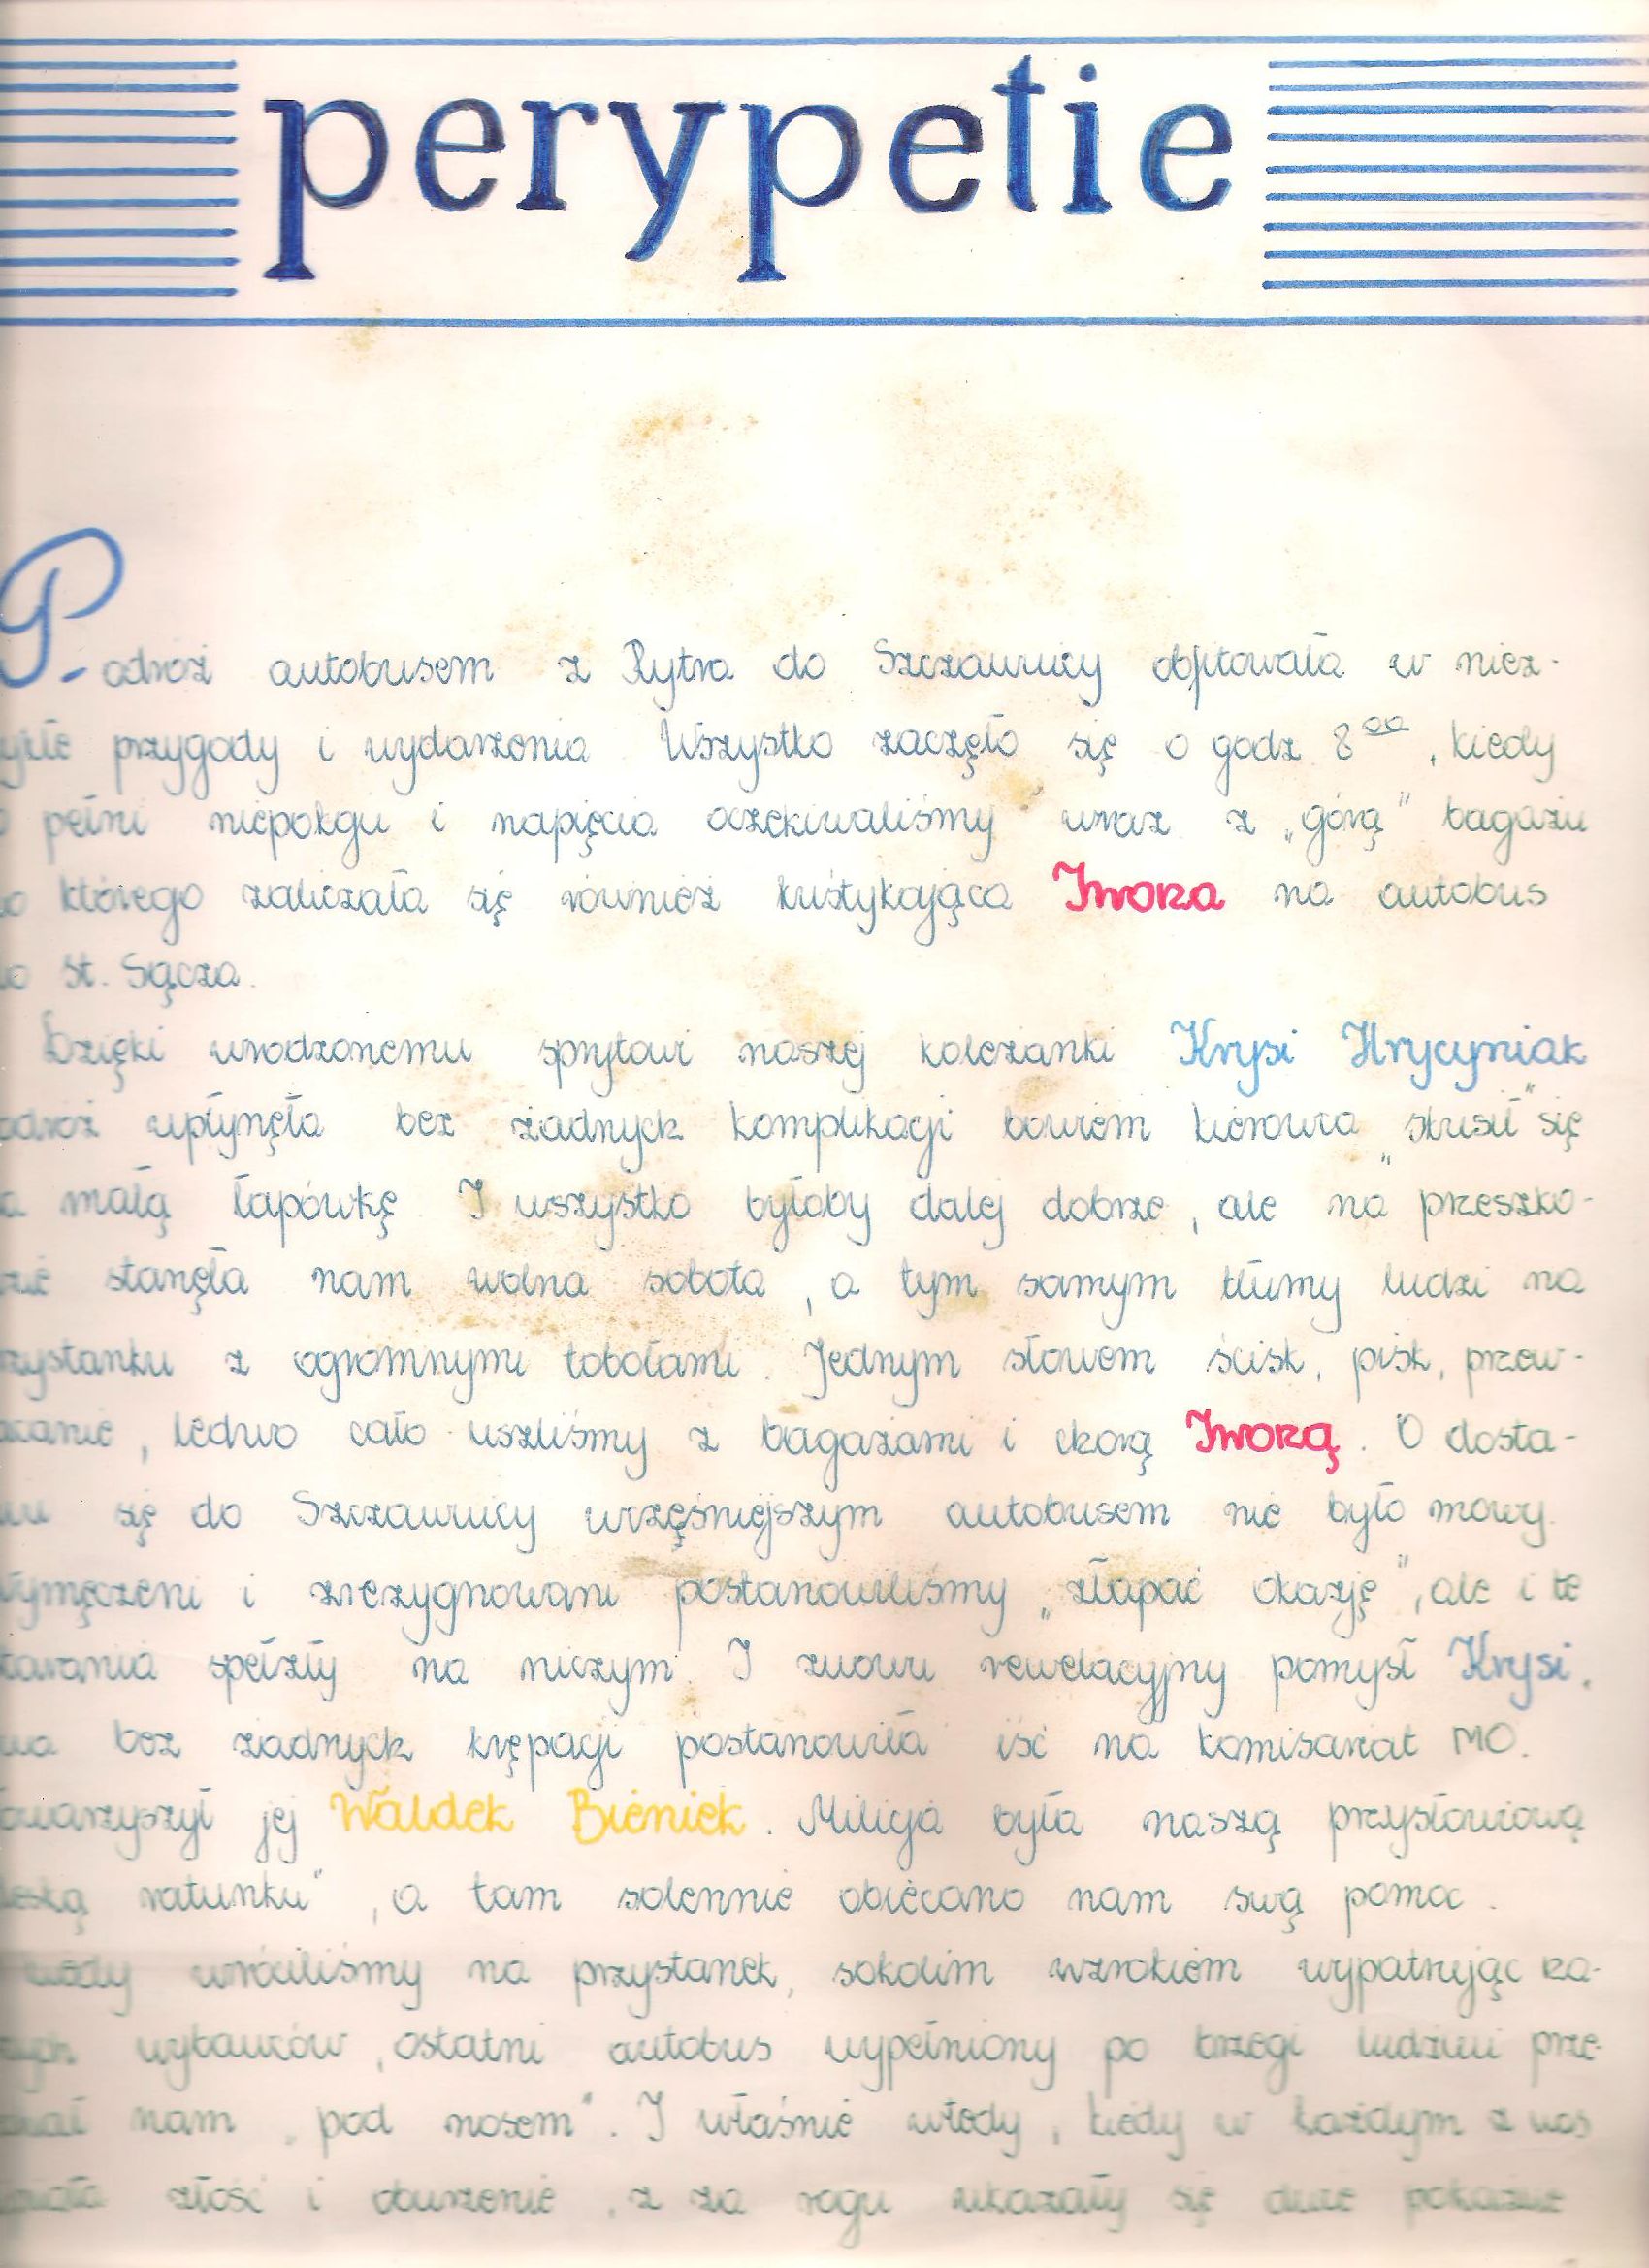 perypetie
Podróż autobusem z Rytra do Szczawnicy obfitowała w niez-
ykłe przygody i wydarzenia. Wszystko zaczęło się o godz 8⁰⁰, kiedy
pełni niepokoju i napięcia oczekiwaliśmy wraz z „górą" bagażu
o którego zaliczała się również kuśtykająca Iwona na autobus
o St. Sącza.
Dzięki wrodzonemu sprytowi naszej koleżanki Krysi Hrycyniak
odróż upłynęła bez żadnych komplikacji bowiem kierowca „skusił" się
a małą łapówkę. I wszystko byłoby dalej dobrze, ale na przeszko-
zie stanęła nam wolna sobota, a tym samym tłumy ludzi na
rzystanku z ogromnymi tobołami. Jednym słowem ścisk, pisk, przew-
acanie, ledwo cało uszliśmy z bagażami i chorą Iwoną. O dosta-
niu się do Szczawnicy wrześniejszym autobusem nie było mowy.
Wymęczeni i zrezygnowani postanowiliśmy „złapać okazję", ale i te
tarania spełzły na niczym. I znowu rewelacyjny pomysł Krysi.
na bez żadnych krępacji postanowiła iść na komisariat MO.
owarzyszył jej Waldek Bieniek. Milicja była naszą przysłowiową
deską ratunku", a tam solennie obiecano nam swą pomoc.
Kiedy wróciliśmy na przystanek, sokolim wzrokiem wypatrując na-
szych wybawców, ostatni autobus wypełniony po brzegi ludźmi prze-
chał nam „pod nosem". I właśnie wtedy, kiedy w każdym z nas
piała złość i oburzenie, z za rogu ukazały się duże pokaźne